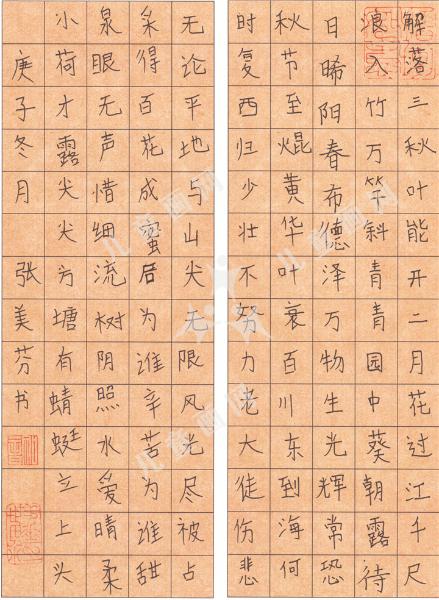 解落三秋叶能开二月花过江千尺
浪入竹万竿斜青青园中葵朝露待
日晞阳春布德泽万物生光辉常恐
秋节至焜黄华叶衰百川东到海何
时复西归少壮不努力老大徒伤悲
无论平地与山尖无限风光尽被占
采得百花成蜜后为谁辛苦为谁甜
泉眼无声惜细流树阴照水爱晴柔
小荷才露尖尖方塘有蜻蜓立上头
庚子冬月 张美芬书
儿童画网
儿童画网
儿童画网
儿童画网